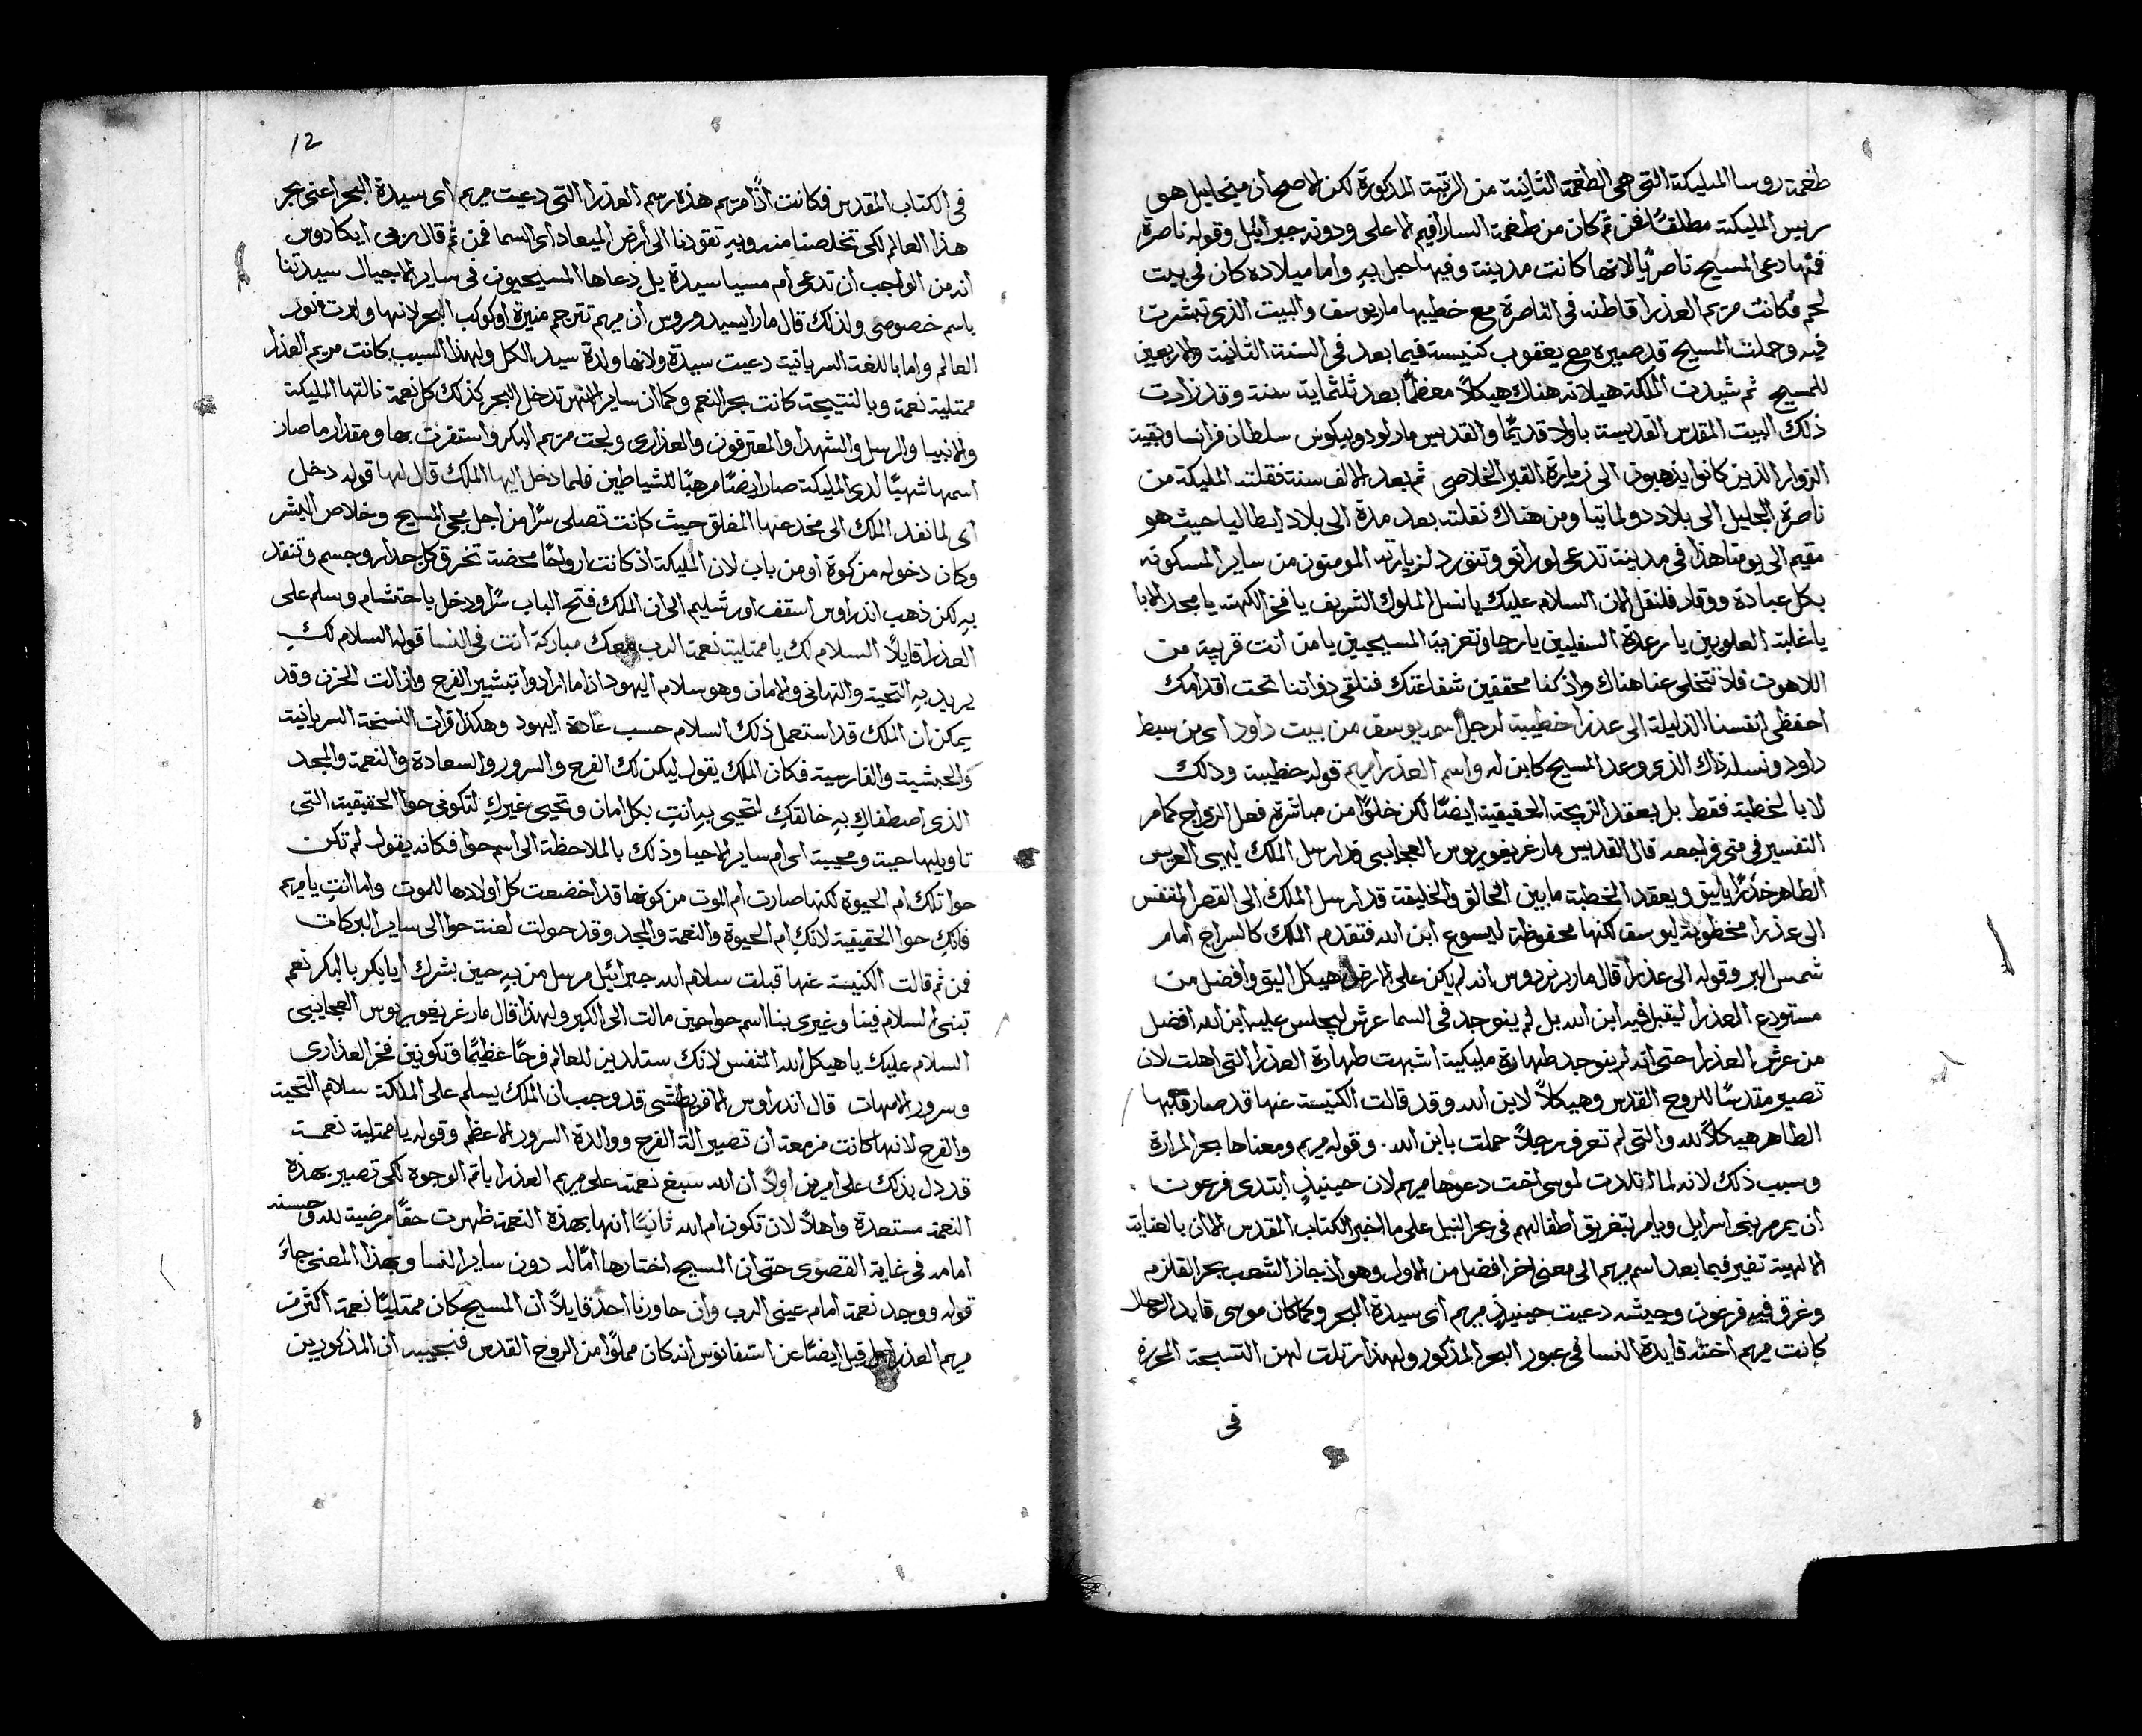 طغمة روسا المليكة التي هي الطغمة الثانية من الرتبة المذكورة لكن الاصح ان ميخاييل هو
رييس المليكة مطلقًا فمن ثم كان من طغمة السارافيم الاعلى ودونه جبرائيل وقوله ناصرة
فمنها دعى المسيح ناصريًا لانها كانت مدينته وفيها حبل به واما ميلاده كان في بيت
لحم فكانت مريم العذرا قاطنه في الناصرة مع خطيبها مار يوسف والبيت الذي تبشرت
فيه وحملت المسيح قد صيره مع يعقوب كنيسة فيما بعد في السنة الثانية والاربعين
للمسيح ثم شيدت الملكة هيلانه هناك هيكلاً معظمًا بعد ثلثماية سنة وقد زارت
ذلك البيت المقدس القديسة باولا قديمًا والقديس مار لودوبيكوس سلطان فرانسا وبقية
الزوار الذين كانوا يذهبون الى زيارة القبر الخلاصي ثم بعد الالف سنة فنقلته المليكة من
ناصرة الجليل الى بلاد دولماتيا ومن هناك نقلته بعد مدة الى بلاد ايطاليا حيث هو
مقيم الى يومنا هذا في مدينة تدعى لوراتو وتتورد لزيارته المومنون من ساير المسكونه
بكل عبادة ووقار فلنقل الان السلام عليك يا نسل الملوك الشريف يا فخر الكهنه يا مجد الابا
يا غلبة العلويين يا رعدة السفليين يا رجا وتعزية المسيحيين يا من انت قريبة من
اللاهوت فلا تتخلى عنا هناك واذ كنا محققين شفاعتك فنلقي ذواتنا تحت اقدامك
احفظي انفسنا الذليلة الى عذرا خطيبة لرجل اسمه يوسف من بيت داود اي من سبط
داود ونسله ذاك الذي وعد المسيح كابن له واسم العذرا مريم قوله خطيبة وذلك
لا بالخطبة فقط بل بعقد الزيجة الحقيقية ايضًا لكن خلوًا من مباشرة فعل الزواج كما مر
التفسير في متى فراجعه قال القديس مار غريغوريوس العجايبي قد ارسل الملك ليهيى العريس
الطاهر خدرًا يليق ويعقد الخطبة ما بين الخالق والخليقة قد ارسل الملك الى القصر المتنفس
الى عذرا مخطوبة ليوسف لكنها محفوظة ليسوع ابن الله فتقدم الملك كالسراج امام
شمس البر وقوله الى عذرا قال مار برنردوس انه لم يكن على الارض هيكل اليق وافضل من
مستودع العذرا ليقبل فيه ابن الله بل لم ينوجد في السما عرش ليجلس عليه ابن الله افضل
من عرش العذرا حتى انه لم ينوجد طهارة مليكية اشبهت طهارة العذرا التي اهلت لان
تصير مقدسًا للروح القدس وهيكلاً لابن الله وقد قالت الكنيسة عنها قد صار قلبها
الطاهر هيكلاً لله والتي لم تعرف رجلاً حملت بابن الله. وقوله مريم ومعناها بحر المرارة
وسبب ذلك لانه لما اتلدت لموسى اخت دعوها مريم لان حينيذٍ ابتدى فرعون
ان يمرمر بنى اسرايل ويامر بتغريق اطفالهم في بحر النيل على ما اخبر الكتاب المقدس الا ان بالعناية
الالهية تغير فيما بعد اسم مريم الى معنى اخر افضل من الاول وهو اذ جاز الشعب بحر القلزم
وغرق فيه فرعون وجيشه دعيت حينيذٍ مريم اى سيدة البحر وكما كان موسى قايد الرجال
كانت مريم اخته قايدة النسا في عبور البحر المذكور ولهذا رتلت لهن التسبحة المحررة
في
12
في الكتاب المقدس فكانت اذًا مريم هذه رسم العذرا التي دعيت مريم اى سيدة البحر اعني بحر
هذا العالم لكي تخلصنا منه وبه تقودنا الى أرض الميعاد اى السما فمن ثم قال ابكادوس
انه من الواجب ان تدعى ام مسيا سيدة بل دعاها المسيحيون في ساير الاجيال سيدتنا
باسم خصوصي ولذلك قال مار ايسيدوروس ان مريم تترجم منيرة او كوكب البحر لانها ولدت نور
العالم واما باللغة السريانية دعيت سيدة ولانها والدة سيد الكل ولهذا السبب كانت مريم العذرا
ممتلية نعمة وبالنتيجة كانت بحر النعم وكما ان ساير الانهر تدخل البحر كذلك كل نعمة نالتها المليكة
والانبيا والرسل والشهدا والمعترفون والعذارى ولجت مريم البكر واستقرت بها ومقدار ما صار
اسمها شهيًا لدى المليكة صار ايضًا مرهبًا للشياطين فلما دخل اليها الملك قال لها قوله دخل
اى لما نفد الملك الى مخدعها المغلق حيث كانت تصلي سرًا من اجل مجى المسيح وخلاص البشر
وكان دخوله من كوة او من باب لان المليكة اذ كانت ارواحًا محضة تخرق كل جدار وجسم وتنفد
به لكن ذهب اندراوس اسقف اورشليم الى ان الملك فتح الباب سرًا ودخل باحتشام وسلم على
العذرا قايلاً السلام لك يا ممتلية نعمة الرب معك مباركة انت في النسا قوله السلام لكِ
يريد به التحية والتهاني والامان وهو سلام اليهود اذا ما ارادوا تبشير الفرح وازالت الحزن وقد
يمكن ان الملك قد استعمل ذلك السلام حسب عادة اليهود وهكذا قرات النسخة السريانية
والحبشية والفارسية فكان الملك يقول ليكن لك الفرح والسرور والسعادة والنعمة والمجد
الذي اصطفاكِ به خالقكِ لتحيى به انتِ بكل امان وتحيى غيركِ لتكوني حوا الحقيقية التي
تاويلها حية ومحيية اى ام ساير الاحيا وذلك بالملاحظة الى اسم حوا فكانه يقول لم تكن
حوا تلك ام الحيوة لكنها صارت ام الموت من كونها قد اخضعت كل اولادها للموت واما انتِ يا مريم
فانكِ حوا الحقيقية لانكِ ام الحيوة والنعمة والمجد وقد حولت لعنت حوا الى ساير البركات
فمن ثم قالت الكنيسة عنها قبلت سلام الله جبرائيل مرسل من به حين بشرك ايا بكر بالبكر نعم
تبنى السلام فينا وغيرى بنا اسم حوا حين مالت الى الكبر ولهذا قال مار غريغوريوس العجايبي
السلام عليك يا هيكل الله المتنفس لانك ستلدين للعالم فرحًا عظيمًا وتكونين فخر العذارى
وسرور الامهات قال اندراوس الاقريطشي قد وجب ان الملك يسلم على الملكة سلام التحية
والفرح لانها كانت مزمعة ان تصير الة الفرح ووالدة السرور الاعظم وقوله يا ممتلية نعمة
قد دل بذلك على امرين اولاً ان الله سبغ نعمته على مريم العذرا باتم الوجوه لكي تصير بهذه
النعمة مستعدة واهلاً لان تكون ام الله ثانيًا انها بهذه النعمة ظهرت حقًا مرضية لله وحسنه
امامه في غاية القصوى حتى ان المسيح اختارها امًا له دون ساير النسا وبهذا المعنى جاءَ
قوله ووجد نعمة امام عيني الرب وان حاورنا احد قايلاً ان المسيح كان ممتليًا نعمة اكثر من
مريم العذرا قيل ايضًا عن استفانوس انه كان مملوًا من الروح القدس فنجيبه ان المذكورين